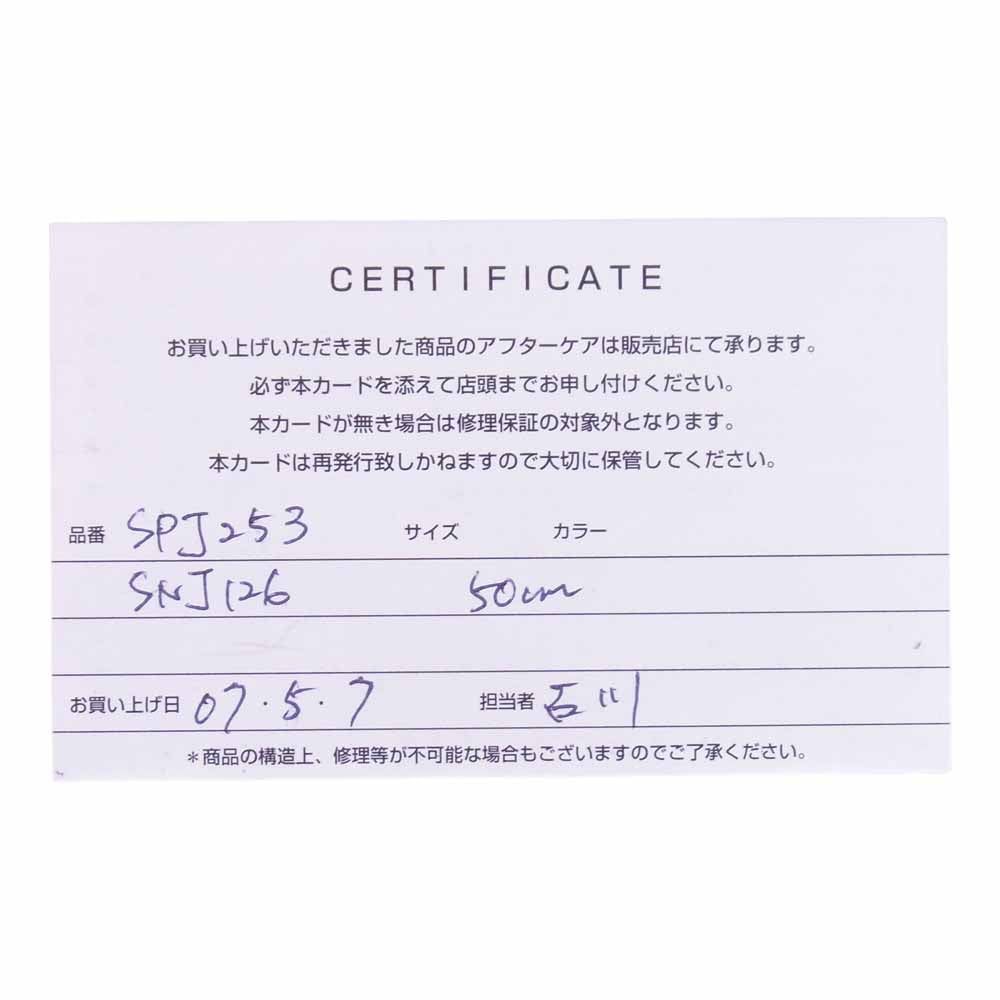 CERTIFICATE
お買い上げいただきました商品のアフターケアは販売店にて承ります。
必ず本カードを添えて店頭までお申し付けください。
本カードが無き場合は修理保証の対象外となります。
本カードは再発行致しかねますので大切に保管してください。
品番 SPJ253 サイズ カラー
SNJ126 50cm
お買い上げ日 07・5・7 担当者
*商品の構造上、修理等が不可能な場合もございますのでご了承ください。